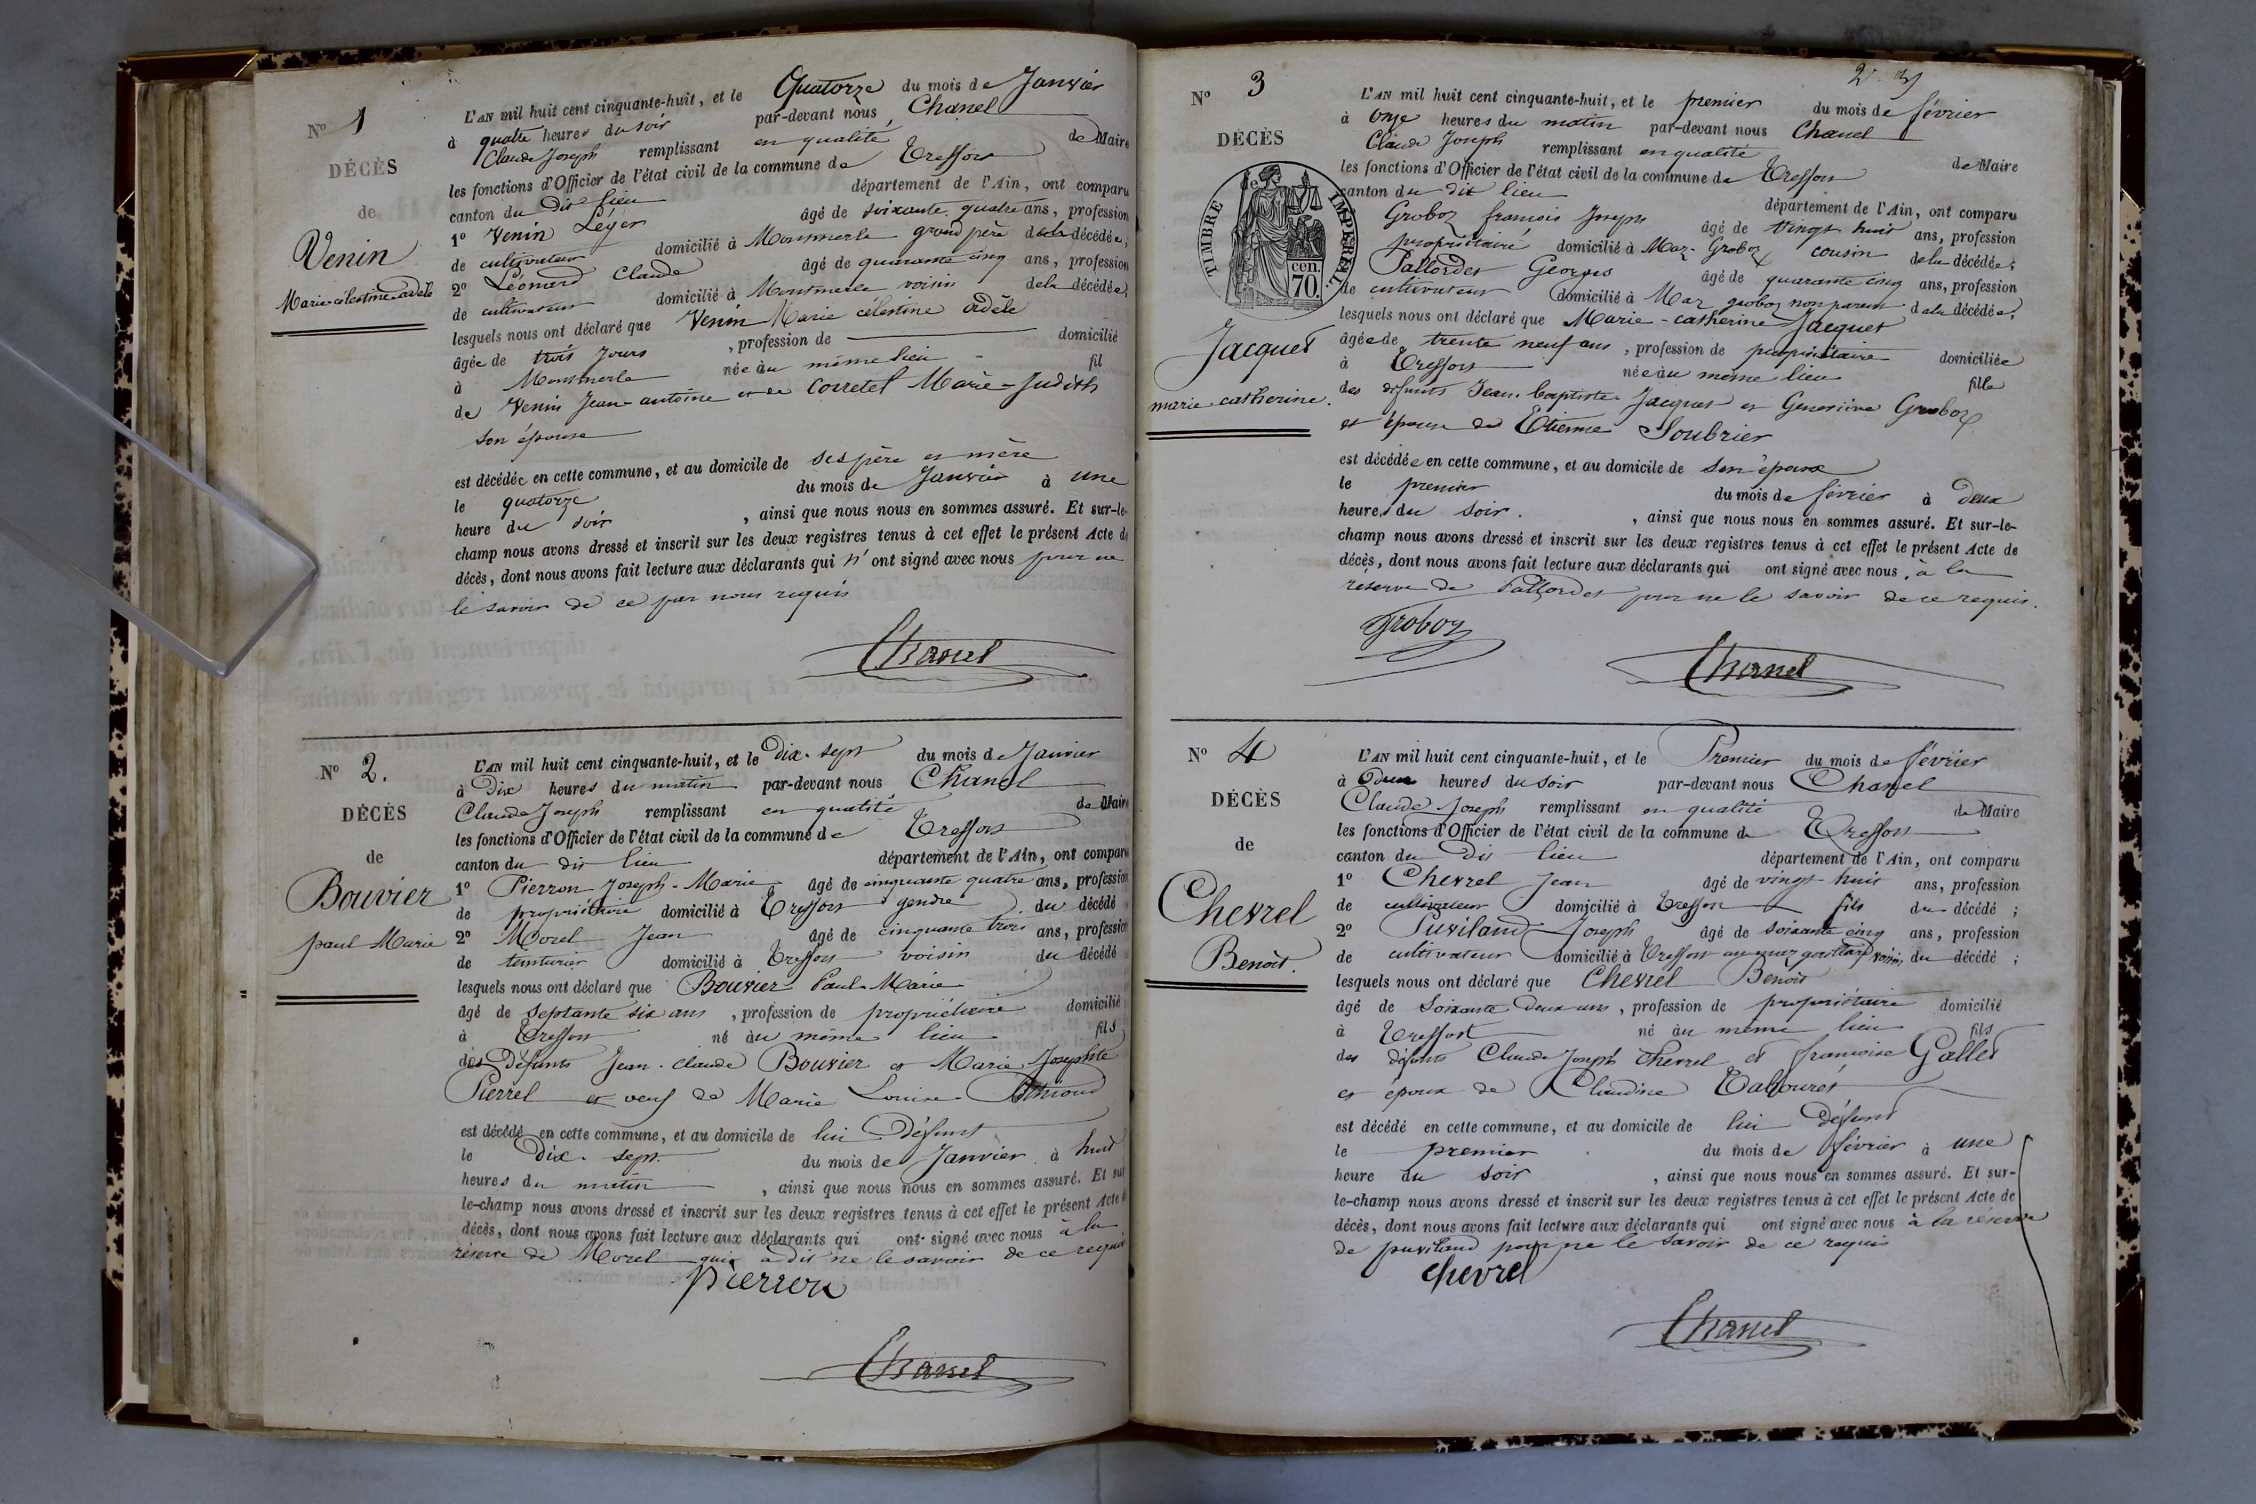 N° 1
DÉCÈS
de
Venin
Marie célestine adèle
L'AN mil huit cent cinquante-huit, et le Quatorze du mois de Janvier
à quatre heures du soir par-devant nous Chanel
Claude Joseph remplissant en qualité de Maire
les fonctions d'Officier de l'état civil de la commune de Treffort
canton du dit lieu département de l'Ain, ont comparu
1° Venin Léger âgé de soixante quatre ans, profession
de cultivateur domicilié à Montmerle grand père de la décédée;
2° Léonard Claude âgé de quarante cinq ans, profession
de cultivateur domicilié à Montmerle voisin de la décédée;
lesquels nous ont déclaré que Venin Marie célestine adèle
âgée de trois Jours, profession de domicilié
à Montmerle née au même lieu fil
de Venin Jean-antoine et de Corretel Marie-Judith
son épouse
est décédée en cette commune, et au domicile de ses père et mère
le quatorze du mois de Janvier à une
heure du soir, ainsi que nous nous en sommes assuré. Et sur-le-
champ nous avons dressé et inscrit sur les deux registres tenus à cet effet le présent Acte de
décès, dont nous avons fait lecture aux déclarants qui n'ont signé avec nous pour ne
le savoir de ce par nous requis
Chanel
N° 2.
DÉCÈS
de
Bouvier
paul Marie
L'AN mil huit cent cinquante-huit, et le Dix-sept du mois de Janvier
à Dix heures du matin par-devant nous Chanel
Claude Joseph remplissant en qualité de Maire
les fonctions d'Officier de l'état civil de la commune de Treffort
canton du dit lieu département de l'Ain, ont comparu
1° Pierron Joseph-Marie âgé de cinquante quatre ans, profession
de propriétaire domicilié à Treffort gendre du décédé
2° Morel Jean âgé de cinquante trois ans, profession
de teinturier domicilié à Treffort voisin du décédé
lesquels nous ont déclaré que Bouvier Paul-Marie
âgé de septante six ans, profession de propriétaire domicilié
à Treffort né au même lieu fils
des Défunts Jean-claude Bouvier et Marie Josephte
Pierrel et veuf de Marie Louise
est décédé en cette commune, et au domicile de lui Défunt
le Dix-sept du mois de Janvier à huit
heures du matin, ainsi que nous nous en sommes assuré. Et sur
le-champ nous avons dressé et inscrit sur les deux registres tenus à cet effet le présent Acte de
décès, dont nous avons fait lecture aux déclarants qui ont signé avec nous à la
réserve de Morel qui a dit ne le savoir de ce requis
pierron
Chanel
N° 3
DÉCÈS
TIMBRE IMPÉRIAL.
cen.
70.
Jacquet
marie-catherine.
L'AN mil huit cent cinquante-huit, et le premier du mois de février
à Onze heures du matin par-devant nous Chanel
Claude Joseph remplissant en qualité de Maire
les fonctions d'Officier de l'état civil de la commune de Treffort
canton du dit lieu département de l'Ain, ont comparu
Groboz francois Joseph âgé de vingt huit ans, profession
propriétaire domicilié à Maz-Groboz cousin de la décédée;
Pallordet Georges âgé de quarante cinq ans, profession
de cultivateur domicilié à Maz groboz non parent de la décédée;
lesquels nous ont déclaré que Marie-catherine Jacquet
âgée de trente neuf ans, profession de propriétaire domiciliée
à Treffort née au même lieu fille
des défunts Jean-baptiste Jacquet et Geneviève Groboz
et épouse de Etienne Soubrier
est décédée en cette commune, et au domicile de son époux
le premier du mois de février à Deux
heures du soir., ainsi que nous nous en sommes assuré. Et sur-le-
champ nous avons dressé et inscrit sur les deux registres tenus à cet effet le présent Acte de
décès, dont nous avons fait lecture aux déclarants qui ont signé avec nous, à la
réserve de Pallordet pour ne le savoir de ce requis.
Groboz
Chanel
N° 4
DÉCÈS
de
Chevrel
Benoît.
L'AN mil huit cent cinquante-huit, et le Premier du mois de février
à Deux heures du soir par-devant nous Chanel
Claude Joseph remplissant en qualité de Maire
les fonctions d'Officier de l'état civil de la commune de Treffort
canton du Dit lieu département de l'Ain, ont comparu
1° Chevrel Jean âgé de vingt huit ans, profession
de cultivateur domicilié à Treffort fils du décédé;
2° Puviland Joseph âgé de soixante cinq ans, profession
de cultivateur domicilié à Treffort voisin du décédé;
lesquels nous ont déclaré que Chevrel Benoît
âgé de Soixante Deux ans, profession de propriétaire domicilié
à Treffort né au même lieu fils
des défunts Claude Joseph Chevrel et francoise Gallet
et époux de Claudine Tabouret
est décédé en cette commune, et au domicile de lui Défunt
le premier du mois de février à une
heure du soir, ainsi que nous nous en sommes assuré. Et sur-
le-champ nous avons dressé et inscrit sur les deux registres tenus à cet effet le présent Acte de
décès, dont nous avons fait lecture aux déclarants qui ont signé avec nous à la réserve
de puviland pour ne le savoir de ce requis
chevrel
Chanel